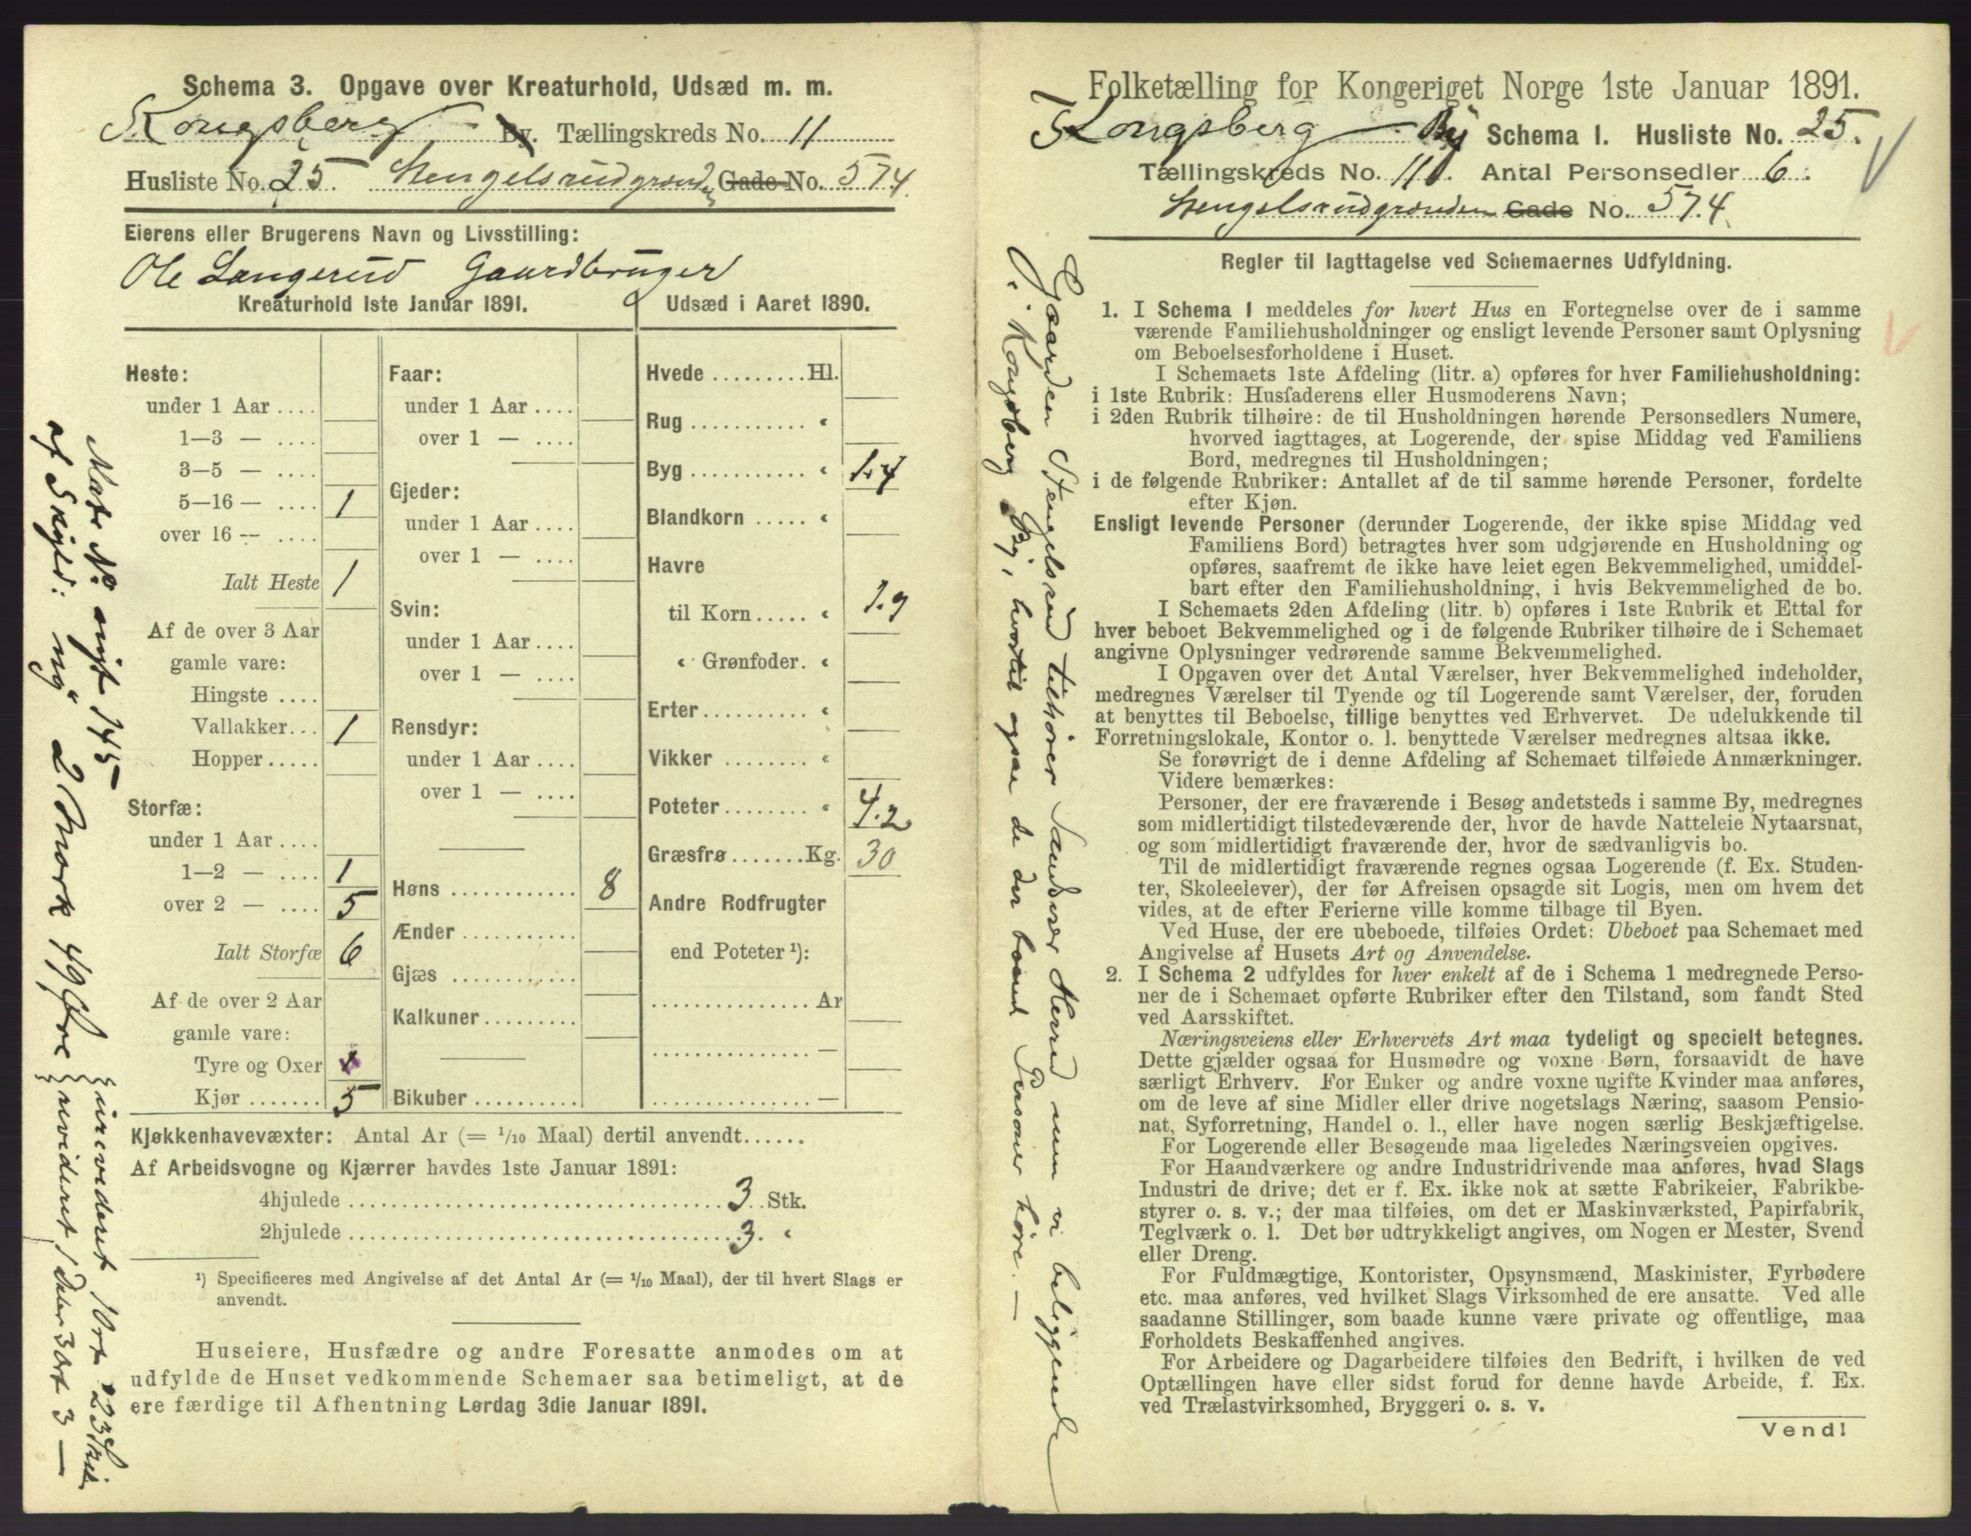 Schema 3. Opgave over Kreaturhold, Udsæd m. m.
Kongsberg By. Tællingskreds No. 11
Husliste No. 25. Stengelsrudgrunden Gade No. 574.
Eierens eller Brugerens Navn og Livsstilling:
Ole Langerud Gaardbruger
Kreaturhold 1ste Januar 1891.
Heste:
under 1 Aar ....
1—3 — ....
3—5 — ....
5—16 — .... 1
over 16 — ....
Ialt Heste 1
Af de over 3 Aar
gamle vare:
Hingste ....
Vallakker... 1
Hopper.....
Storfæ:
under 1 Aar ....
1—2 — .... 1
over 2 — .... 5
Ialt Storfæ 6
Af de over 2 Aar
gamle vare:
Tyre og Oxer
Kjør ....... 5
Faar:
under 1 Aar ....
over 1 — ....
Gjeder:
under 1 Aar ....
over 1 — ....
Svin:
under 1 Aar ....
over 1 — ....
Rensdyr:
under 1 Aar ....
over 1 — ....
Høns ........... 8
Ænder ...........
Gjæs ...........
Kalkuner.........
Bikuber ..........
Udsæd i Aaret 1890.
Hvede .........Hl.
Rug ........... "
Byg ........... " 1.4
Blandkorn ..... "
Havre
til Korn ..... " 1.9
" Grønfoder. "
Erter.......... "
Vikker ........ "
Poteter ....... " 4.2
Græsfrø.......Kg. 30
Andre Rodfrugter
end Poteter ¹):
............... Ar
............... —
............... —
Kjøkkenhavevæxter: Antal Ar (= 1/10 Maal) dertil anvendt......
Af Arbeidsvogne og Kjærrer havdes 1ste Januar 1891:
4hjulede .................................... 3 Stk.
2hjulede .................................... 3. "
¹) Specificeres med Angivelse af det Antal Ar (= 1/10 Maal), der til hvert Slags er
anvendt.
Huseiere, Husfædre og andre Foresatte anmodes om at
udfylde de Huset vedkommende Schemaer saa betimeligt, at de
ere færdige til Afhentning Lørdag 3die Januar 1891.
Matr No nyt 145
af Skyld: ny 2 Mark 49 Øre
urevideret 1 Ort 23 Skil
revideret 1 Daler 3 ort 3 —
Folketælling for Kongeriget Norge 1ste Januar 1891.
Kongsberg By Schema 1. Husliste No. 25.
Tællingskreds No. 11. Antal Personsedler 6.
Stengelsrudgrunden Gade No. 574.
Regler til Iagttagelse ved Schemaernes Udfyldning.
1. I Schema 1 meddeles for hvert Hus en Fortegnelse over de i samme
værende Familiehusholdninger og ensligt levende Personer samt Oplysning
om Beboelsesforholdene i Huset.
I Schemaets 1ste Afdeling (litr. a) opføres for hver Familiehusholdning:
i 1ste Rubrik: Husfaderens eller Husmoderens Navn;
i 2den Rubrik tilhøire: de til Husholdningen hørende Personsedlers Numere,
hvorved iagttages, at Logerende, der spise Middag ved Familiens
Bord, medregnes til Husholdningen;
i de følgende Rubriker: Antallet af de til samme hørende Personer, fordelte
efter Kjøn.
Ensligt levende Personer (derunder Logerende, der ikke spise Middag ved
Familiens Bord) betragtes hver som udgjørende en Husholdning og
opføres, saafremt de ikke have leiet egen Bekvemmelighed, umiddel-
bart efter den Familiehusholdning, i hvis Bekvemmelighed de bo.
I Schemaets 2den Afdeling (litr. b) opføres i 1ste Rubrik et Ettal for
hver beboet Bekvemmelighed og i de følgende Rubriker tilhøire de i Schemaet
angivne Oplysninger vedrørende samme Bekvemmelighed.
I Opgaven over det Antal Værelser, hver Bekvemmelighed indeholder,
medregnes Værelser til Tyende og til Logerende samt Værelser, der, foruden
at benyttes til Beboelse, tillige benyttes ved Erhvervet. De udelukkende til
Forretningslokale, Kontor o. l. benyttede Værelser medregnes altsaa ikke.
Se forøvrigt de i denne Afdeling af Schemaet tilføiede Anmærkninger.
Videre bemærkes:
Personer, der ere fraværende i Besøg andetsteds i samme By, medregnes
som midlertidigt tilstedeværende der, hvor de havde Natteleie Nytaarsnat,
og som midlertidigt fraværende der, hvor de sædvanligvis bo.
Til de midlertidigt fraværende regnes ogsaa Logerende (f. Ex. Studen-
ter, Skoleelever), der før Afreisen opsagde sit Logis, men om hvem det
vides, at de efter Ferierne ville komme tilbage til Byen.
Ved Huse, der ere ubeboede, tilføies Ordet: Ubeboet paa Schemaet med
Angivelse af Husets Art og Anvendelse.
2. I Schema 2 udfyldes for hver enkelt af de i Schema 1 medregnede Perso-
ner de i Schemaet opførte Rubriker efter den Tilstand, som fandt Sted
ved Aarsskiftet.
Næringsveiens eller Erhvervets Art maa tydeligt og specielt betegnes.
Dette gjælder ogsaa for Husmødre og voxne Børn, forsaavidt de have
særligt Erhverv. For Enker og andre voxne ugifte Kvinder maa anføres,
om de leve af sine Midler eller drive nogetslags Næring, saasom Pensio-
nat, Syforretning, Handel o. l., eller have nogen særlig Beskjæftigelse.
For Logerende eller Besøgende maa ligeledes Næringsveien opgives.
For Haandværkere og andre Industridrivende maa anføres, hvad Slags
Industri de drive; det er f. Ex. ikke nok at sætte Fabrikeier, Fabrikbe-
styrer o. s. v.; der maa tilføies, om det er Maskinværksted, Papirfabrik,
Teglværk o. l. Det bør udtrykkeligt angives, om Nogen er Mester, Svend
eller Dreng.
For Fuldmægtige, Kontorister, Opsynsmænd, Maskinister, Fyrbødere
etc. maa anføres, ved hvilket Slags Virksomhed de ere ansatte. Ved alle
saadanne Stillinger, som baade kunne være private og offentlige, maa
Forholdets Beskaffenhed angives.
For Arbeidere og Dagarbeidere tilføies den Bedrift, i hvilken de ved
Optællingen have eller sidst forud for denne havde Arbeide, f. Ex.
ved Trælastvirksomhed, Bryggeri o. s. v.
Vend!
Gaarden Stengelsrud tilhører Sandsvær Herred men er beliggende
i Kongsberg By, hvortil ogsaa de der boend Personer høre. —